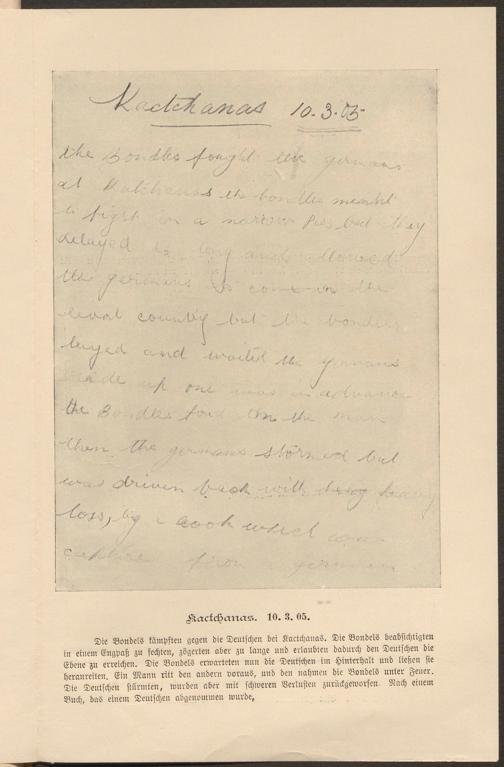 Kactchanas 10.3.05
the Bondles fought the germans
at Katchanas the bondles meant
to fight in a narrow Pas, but they
delayed to long and allowed
the germans to come in the
level country but the bondles
layed and waited the germans
rode up one was in advance
the Bondles on the man
then the germans stormed but
was driven back with heavy
loss, by a book which was
from a german
Kactchanas. 10. 3. 05.
Die Bondels kämpften gegen die Deutschen bei Kactchanas. Die Bondels beabsichtigten
in einem Engpaß zu fechten, zögerten aber zu lange und erlaubten dadurch den Deutschen die
Ebene zu erreichen. Die Bondels erwarteten nun die Deutschen im Hinterhalt und ließen sie
heranreiten. Ein Mann ritt den andern voraus, und den nahmen die Bondels unter Feuer.
Die Deutschen stürmten, wurden aber mit schweren Verlusten zurückgeworfen. Nach einem
Buch, das einem Deutschen abgenommen wurde,